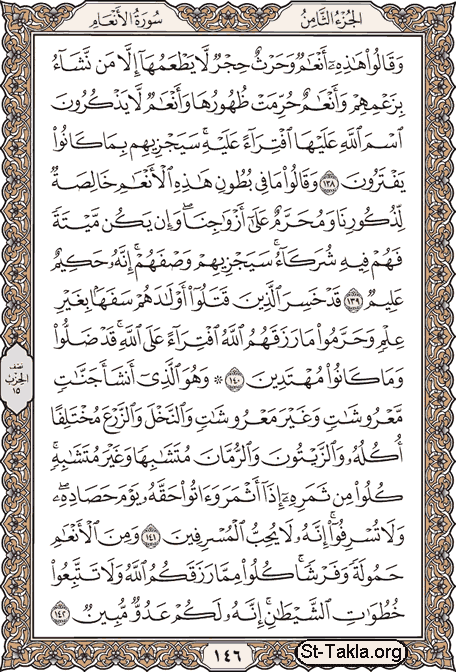 الجزء الثامن
سورة الأنعام
وَقَالُوا۟ هَـٰذِهِۦٓ أَنْعَـٰمٌ وَحَرْثٌ حِجْرٌ لَّا يَطْعَمُهَآ إِلَّا مَن نَّشَآءُ
بِزَعْمِهِمْ وَأَنْعَـٰمٌ حُرِّمَتْ ظُهُورُهَا وَأَنْعَـٰمٌ لَّا يَذْكُرُونَ
ٱسْمَ ٱللَّهِ عَلَيْهَا ٱفْتِرَآءً عَلَيْهِ ۚ سَيَجْزِيهِم بِمَا كَانُوا۟
يَفْتَرُونَ ١٣٨ وَقَالُوا۟ مَا فِى بُطُونِ هَـٰذِهِ ٱلْأَنْعَـٰمِ خَالِصَةٌ
لِّذُكُورِنَا وَمُحَرَّمٌ عَلَىٰٓ أَزْوَٰجِنَا ۖ وَإِن يَكُن مَّيْتَةً
فَهُمْ فِيهِ شُرَكَآءُ ۚ سَيَجْزِيهِمْ وَصْفَهُمْ ۚ إِنَّهُۥ حَكِيمٌ
عَلِيمٌ ١٣٩ قَدْ خَسِرَ ٱلَّذِينَ قَتَلُوٓا۟ أَوْلَـٰدَهُمْ سَفَهًۢا بِغَيْرِ
عِلْمٍ وَحَرَّمُوا۟ مَا رَزَقَهُمُ ٱللَّهُ ٱفْتِرَآءً عَلَى ٱللَّهِ ۚ قَدْ ضَلُّوا۟
وَمَا كَانُوا۟ مُهْتَدِينَ ١٤٠ ۞ وَهُوَ ٱلَّذِىٓ أَنشَأَ جَنَّـٰتٍ
مَّعْرُوشَـٰتٍ وَغَيْرَ مَعْرُوشَـٰتٍ وَٱلنَّخْلَ وَٱلزَّرْعَ مُخْتَلِفًا
أُكُلُهُۥ وَٱلزَّيْتُونَ وَٱلرُّمَّانَ مُتَشَـٰبِهًا وَغَيْرَ مُتَشَـٰبِهٍ ۚ
كُلُوا۟ مِن ثَمَرِهِۦٓ إِذَآ أَثْمَرَ وَءَاتُوا۟ حَقَّهُۥ يَوْمَ حَصَادِهِۦ ۖ
وَلَا تُسْرِفُوٓا۟ ۚ إِنَّهُۥ لَا يُحِبُّ ٱلْمُسْرِفِينَ ١٤١ وَمِنَ ٱلْأَنْعَـٰمِ
حَمُولَةً وَفَرْشًا ۚ كُلُوا۟ مِمَّا رَزَقَكُمُ ٱللَّهُ وَلَا تَتَّبِعُوا۟
خُطُوَٰتِ ٱلشَّيْطَـٰنِ ۚ إِنَّهُۥ لَكُمْ عَدُوٌّ مُّبِينٌ ١٤٢
نصف
الحزب
١٥
١٤٦
St-Takla.org